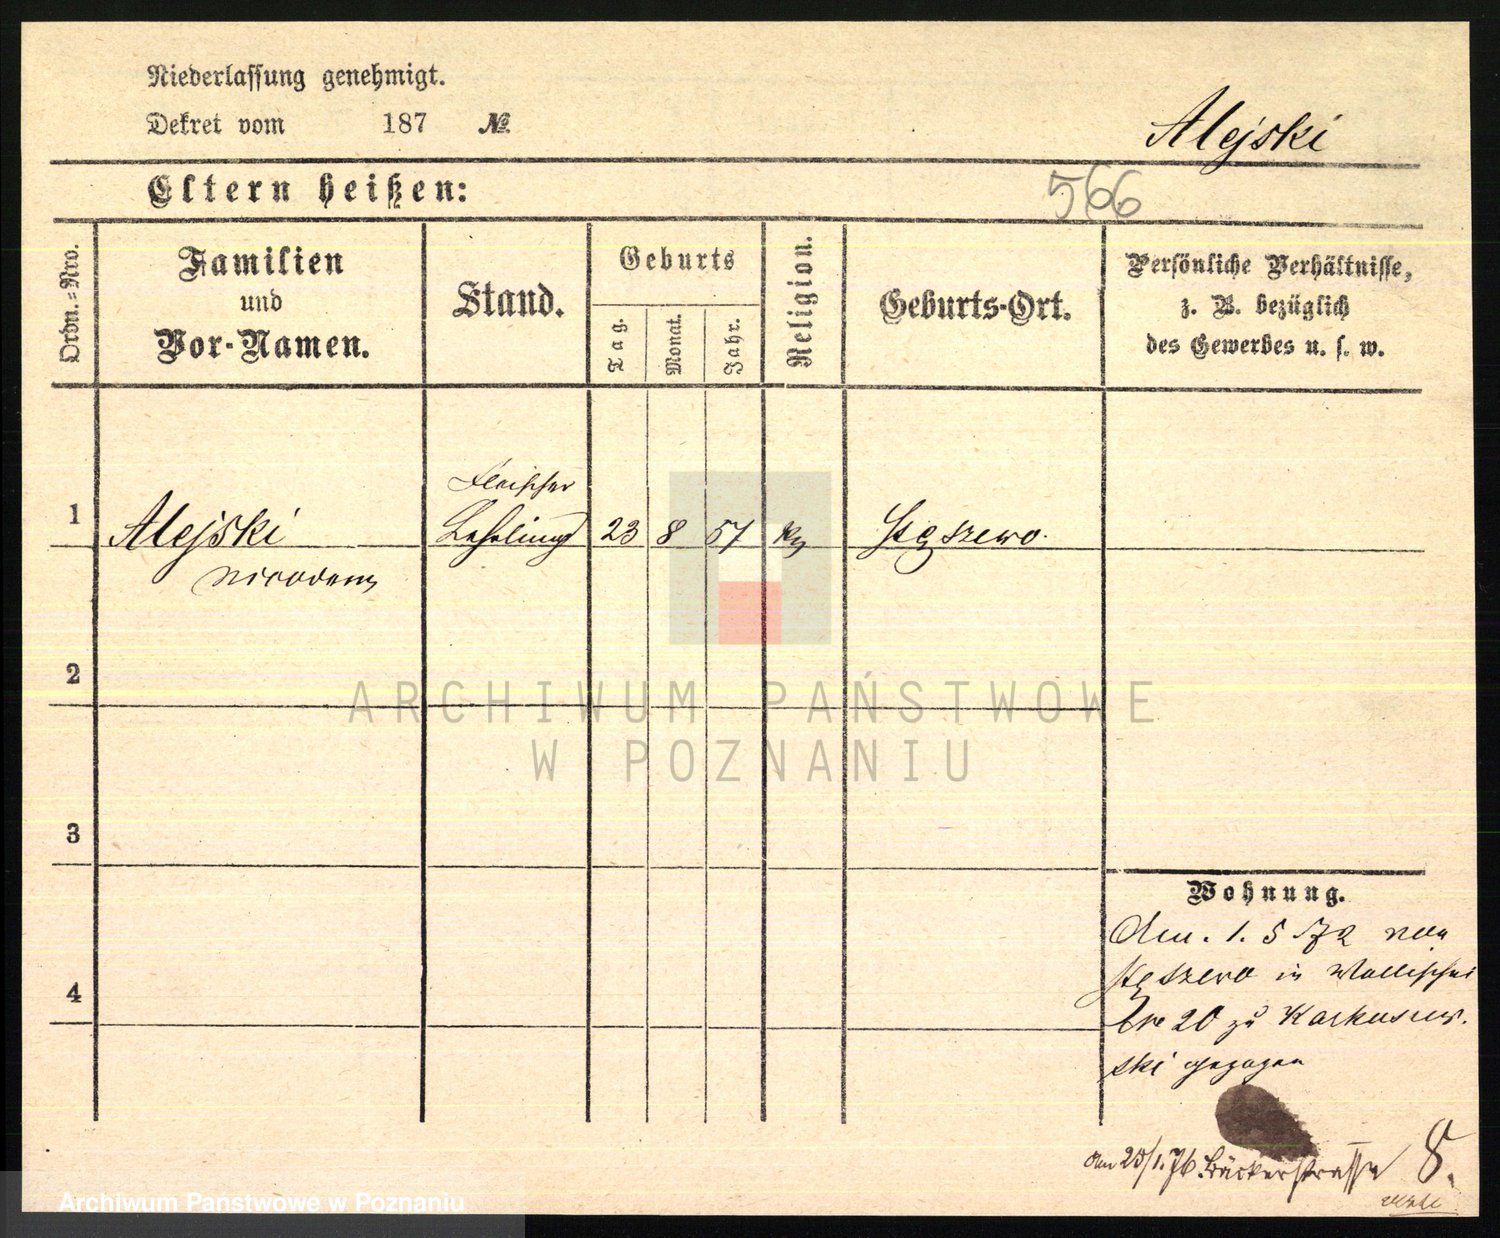 Niederlassung genehmigt.
Dekret vom 187 №
Alejski
Eltern heißen:
566
Ordn.=Nro.
Familien
und
Vor-Namen.
Stand.
Geburts
Tag.
Monat.
Jahr.
Religion.
Geburts-Ort.
Persönliche Verhältnisse,
z. B. bezüglich
des Gewerbes u. s. w.
Fleischer
1 Alejski Lehrling 23 8 57 Stęszewo.
2
3
4
ARCHIWUM PAŃSTWOWE
W POZNANIU
Wohnung.
Am. 1. 5 72 von
Stęszewo in Wallischei
20 zu
ski gezogen
am 1. 76 Bäckerstrasse 8.
Archiwum Państwowe w Poznaniu